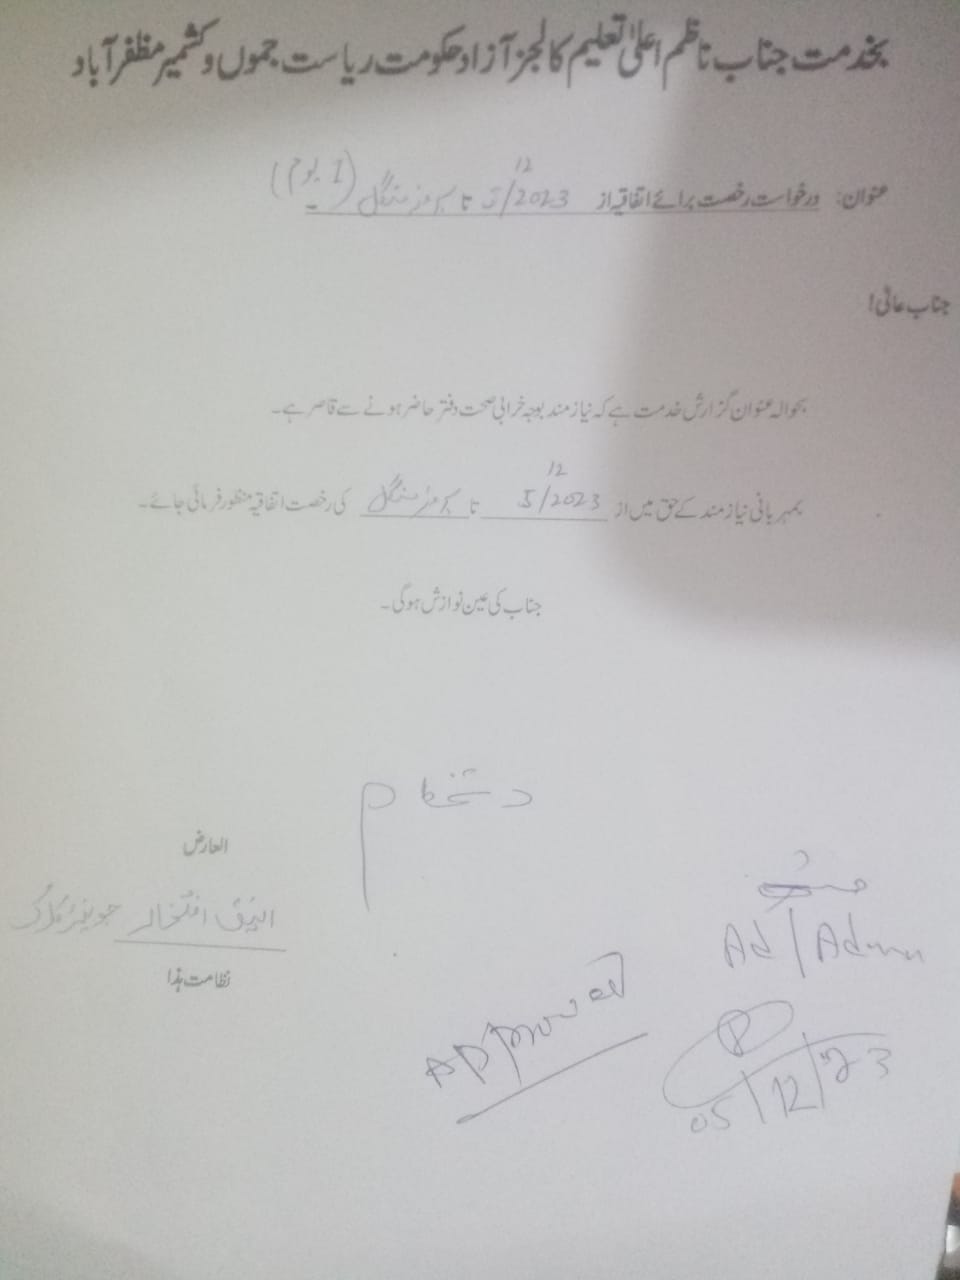 بخدمت جناب ناظم اعلیٰ تعلیم کالجز آزاد حکومت ریاست جموں و کشمیر مظفر آباد
عنوان: درخواست رخصت برائے اتفاقیہ از 5/12/2023 تا بروز منگل (1 یوم)
جناب عالی!
بحوالہ عنوان گزارش خدمت ہے کہ نیاز مند بوجہ خرابی صحت دفتر حاضر ہونے سے قاصر ہے۔
بمہربانی نیاز مند کے حق میں از 5/12/2023 تا بروز منگل کی رخصت اتفاقیہ منظور فرمائی جائے۔
جناب کی عین نوازش ہوگی۔
العارض
افتخار جونیئر کلرک
نظامت ہذا
Ad/Admn
Approved
05/12/23